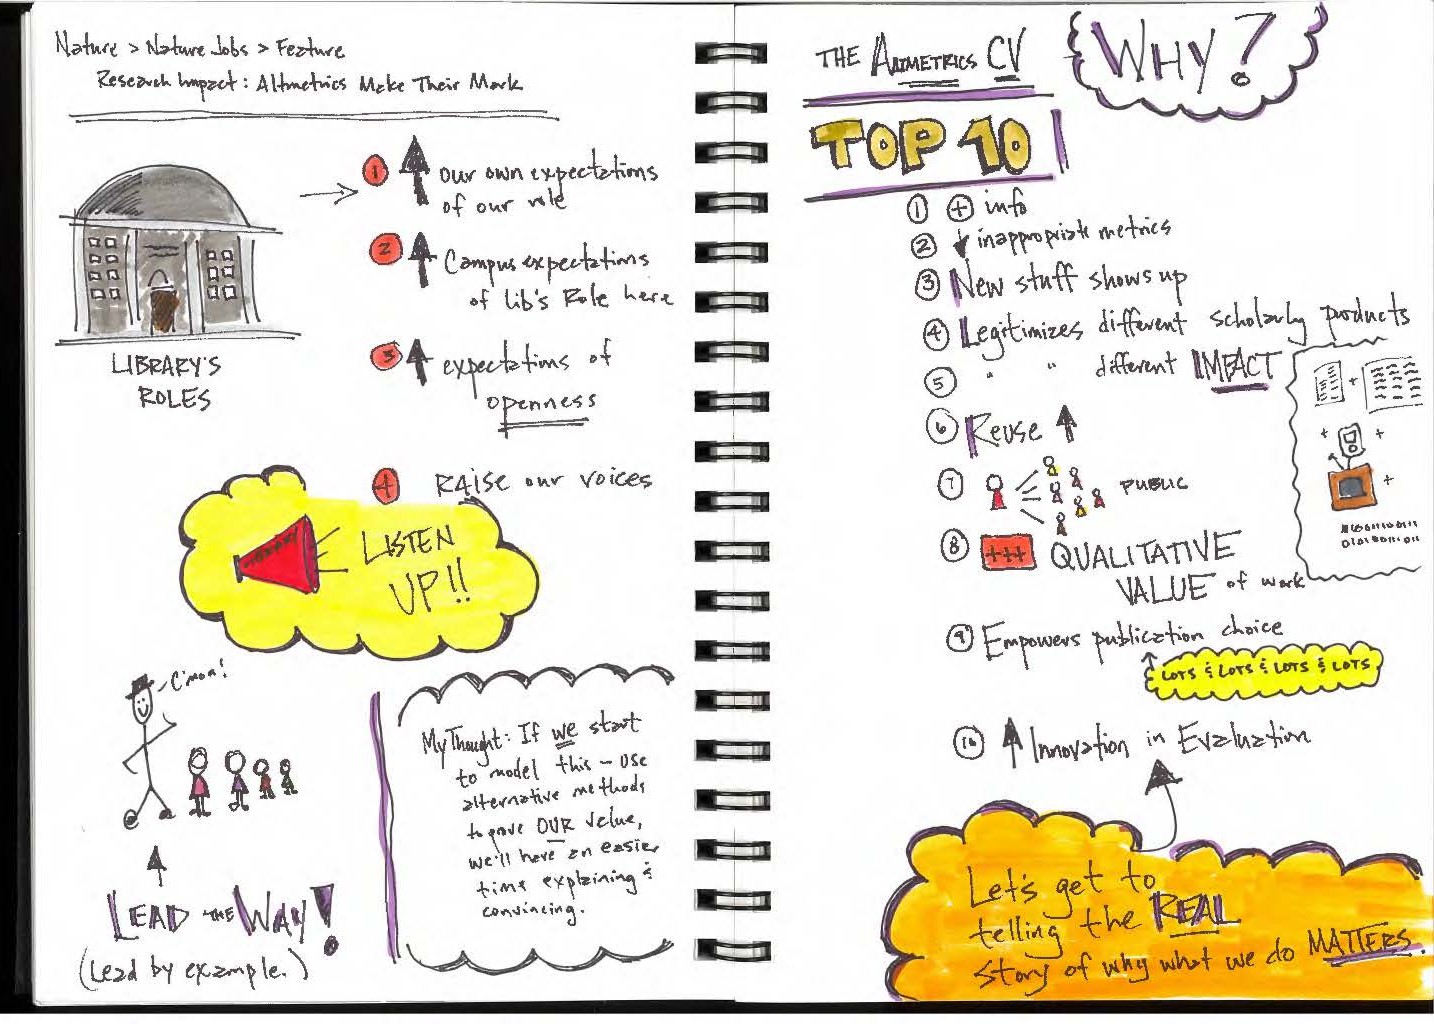 Nature > Nature Jobs > Feature
Research Impact: Altmetrics Make Their Mark
LIBRARY'S
ROLES
1 our own expectations
of our role
2 Campus expectations
of lib's Role here
3 expectations of
openness
4 RAISE our voices
LISTEN
UP!!
C'mon!
LEAD THE WAY!
(Lead by example.)
My Thought: If we start
to model this - use
alternative methods
to prove OUR value,
we'll have an easier
time explaining &
convincing.
THE ALTMETRICS CV
WHY?
TOP 10
1 + info
2 inappropriate metrics
3 New stuff shows up
4 Legitimizes different scholarly products
5 " " different IMPACT
6 Reuse
7 PUBLIC
8 +++ QUALITATIVE
VALUE of work
9 Empowers publication choice
LOTS & LOTS & LOTS & LOTS
10 Innovation in Evaluation
Let's get to
telling the REAL
story of why what we do MATTERS.